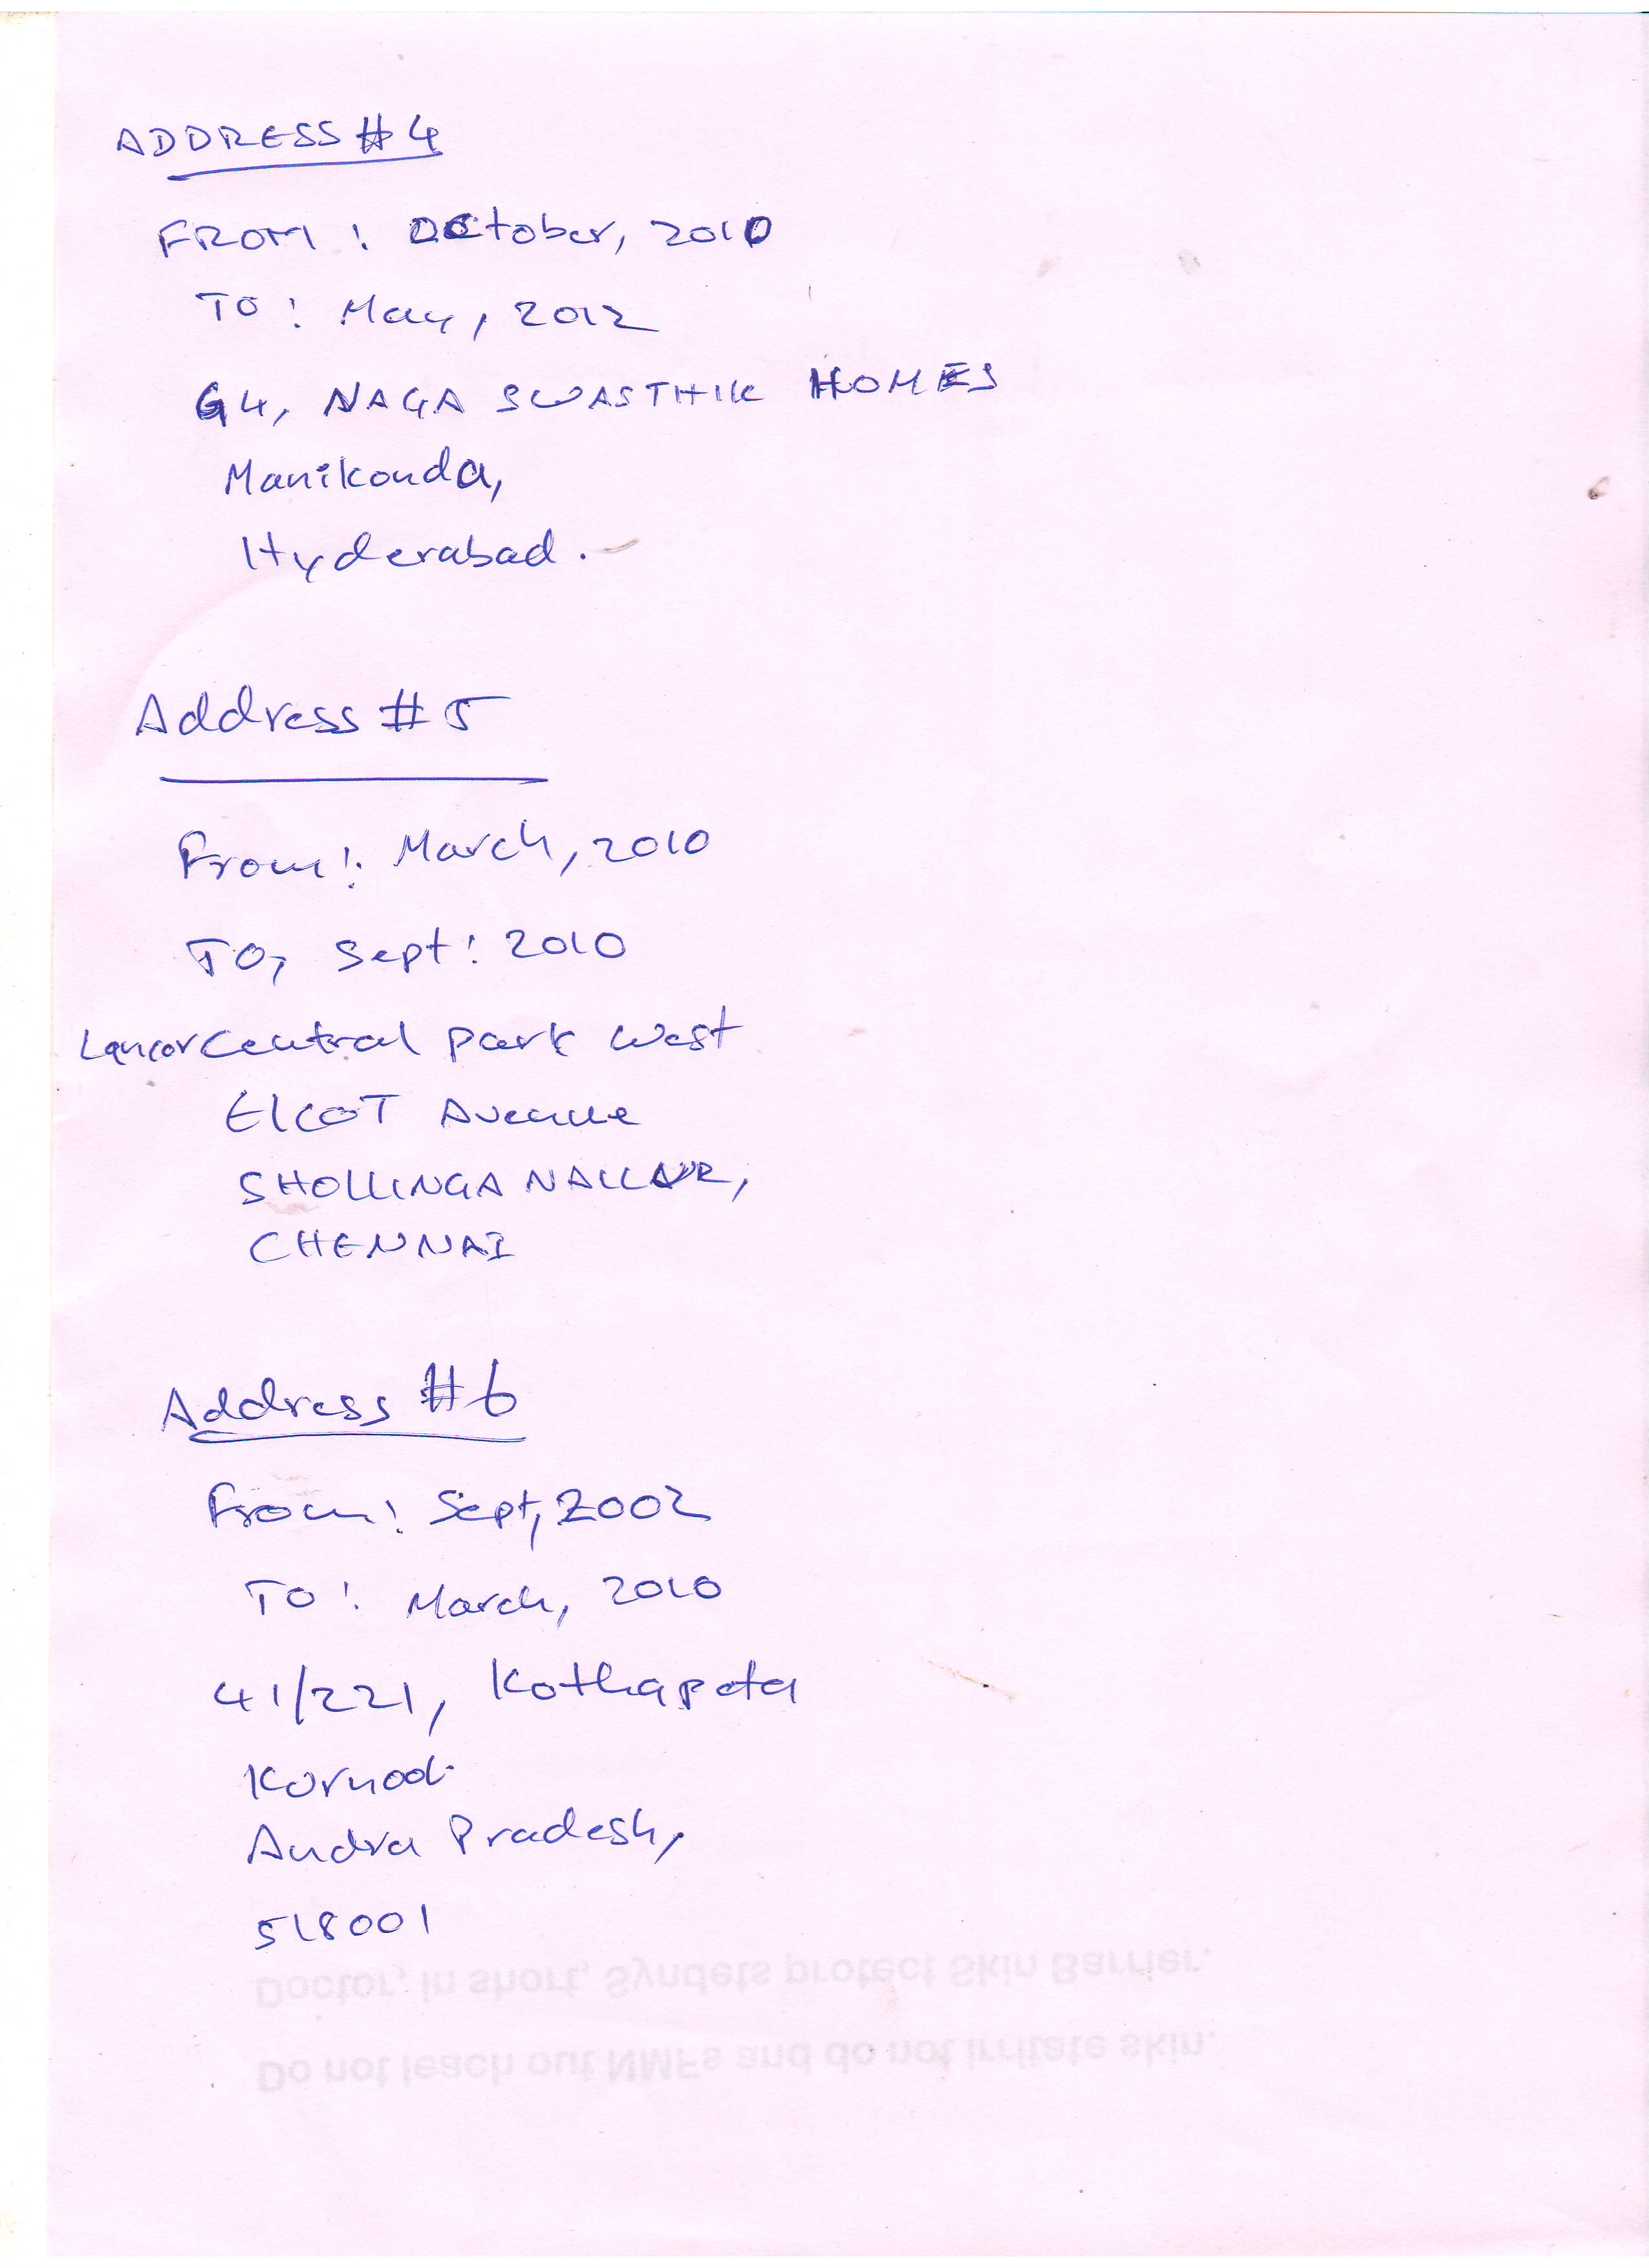 ADDRESS #4
FROM: October, 2010
TO: May, 2012
G4, NAGA SWASTHIK HOMES
Manikonda,
Hyderabad.
Address #5
From: March, 2010
TO, Sept: 2010
Lancor Central park West
ElCOT Avenue
SHOLLINGANALLUR,
CHENNAI
Address #6
From: Sept, 2002
TO: March, 2010
41/221, Kothapeta
Kurnool
Andra Pradesh,
518001
Doctor, in short, Syndets protect Skin Barrier.
Do not leach out NMFs and do not irritate skin.